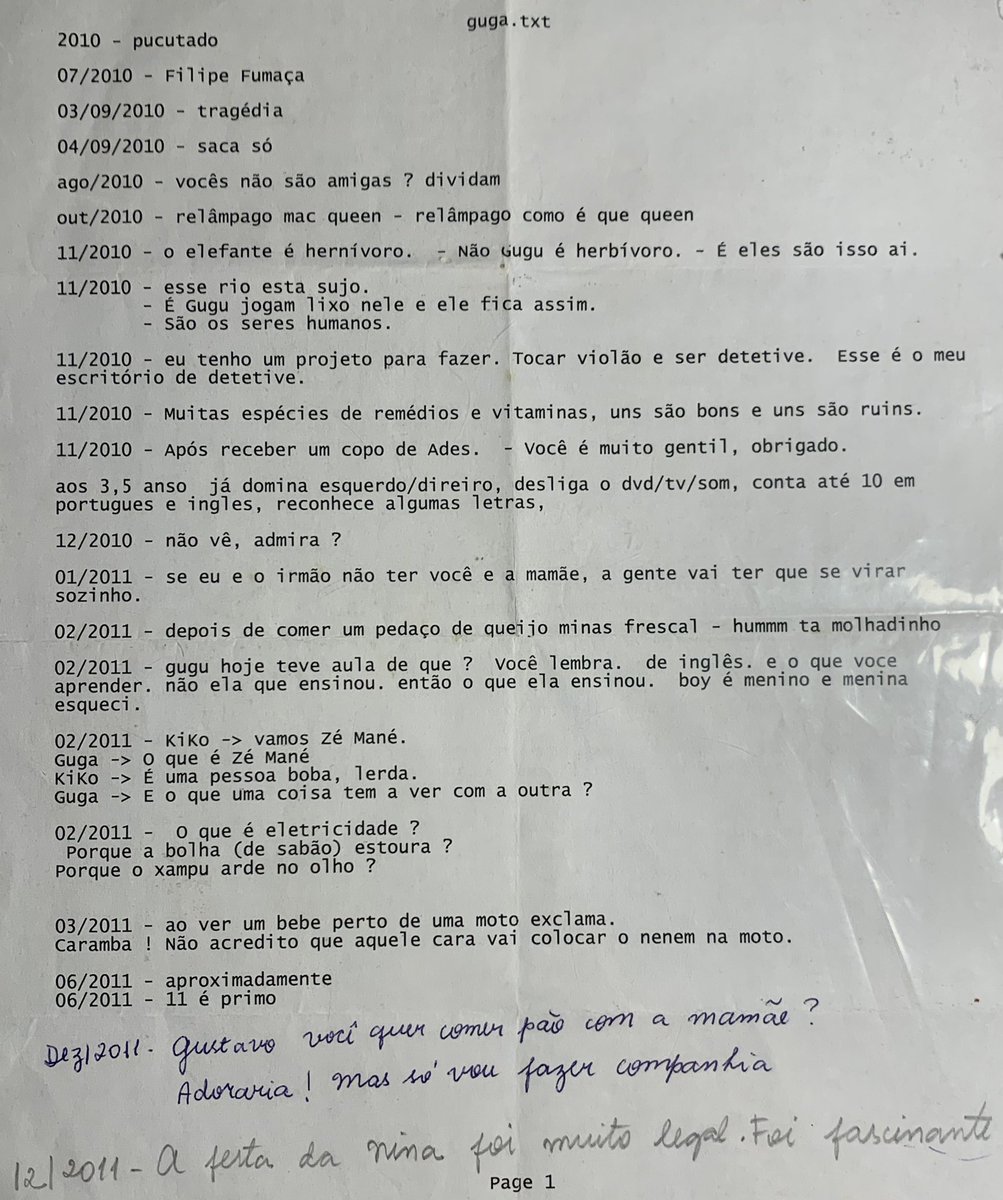 guga.txt
2010 - pucutado
07/2010 - Filipe Fumaça
03/09/2010 - tragédia
04/09/2010 - saca só
ago/2010 - vocês não são amigas ? dividam
out/2010 - relâmpago mac queen - relâmpago como é que queen
11/2010 - o elefante é hernívoro.  - Não Gugu é herbívoro. - É eles são isso ai.
11/2010 - esse rio esta sujo.
- É Gugu jogam lixo nele e ele fica assim.
- São os seres humanos.
11/2010 - eu tenho um projeto para fazer. Tocar violão e ser detetive.  Esse é o meu
escritório de detetive.
11/2010 - Muitas espécies de remédios e vitaminas, uns são bons e uns são ruins.
11/2010 - Após receber um copo de Ades.  - Você é muito gentil, obrigado.
aos 3,5 anso  já domina esquerdo/direiro, desliga o dvd/tv/som, conta até 10 em
portugues e ingles, reconhece algumas letras,
12/2010 - não vê, admira ?
01/2011 - se eu e o irmão não ter você e a mamãe, a gente vai ter que se virar
sozinho.
02/2011 - depois de comer um pedaço de queijo minas frescal - hummm ta molhadinho
02/2011 - gugu hoje teve aula de que ?  Você lembra.  de inglês. e o que voce
aprender. não ela que ensinou. então o que ela ensinou.  boy é menino e menina
esqueci.
02/2011 - KiKo -> vamos Zé Mané.
Guga -> O que é Zé Mané
KiKo -> É uma pessoa boba, lerda.
Guga -> E o que uma coisa tem a ver com a outra ?
02/2011 -  O que é eletricidade ?
Porque a bolha (de sabão) estoura ?
Porque o xampu arde no olho ?
03/2011 - ao ver um bebe perto de uma moto exclama.
Caramba ! Não acredito que aquele cara vai colocar o nenem na moto.
06/2011 - aproximadamente
06/2011 - 11 é primo
Dez/2011 - Gustavo você quer comer pão com a mamãe ?
Adoraria ! Mas só vou fazer companhia
12/2011 - A festa da nina foi muito legal. Foi fascinante
Page 1